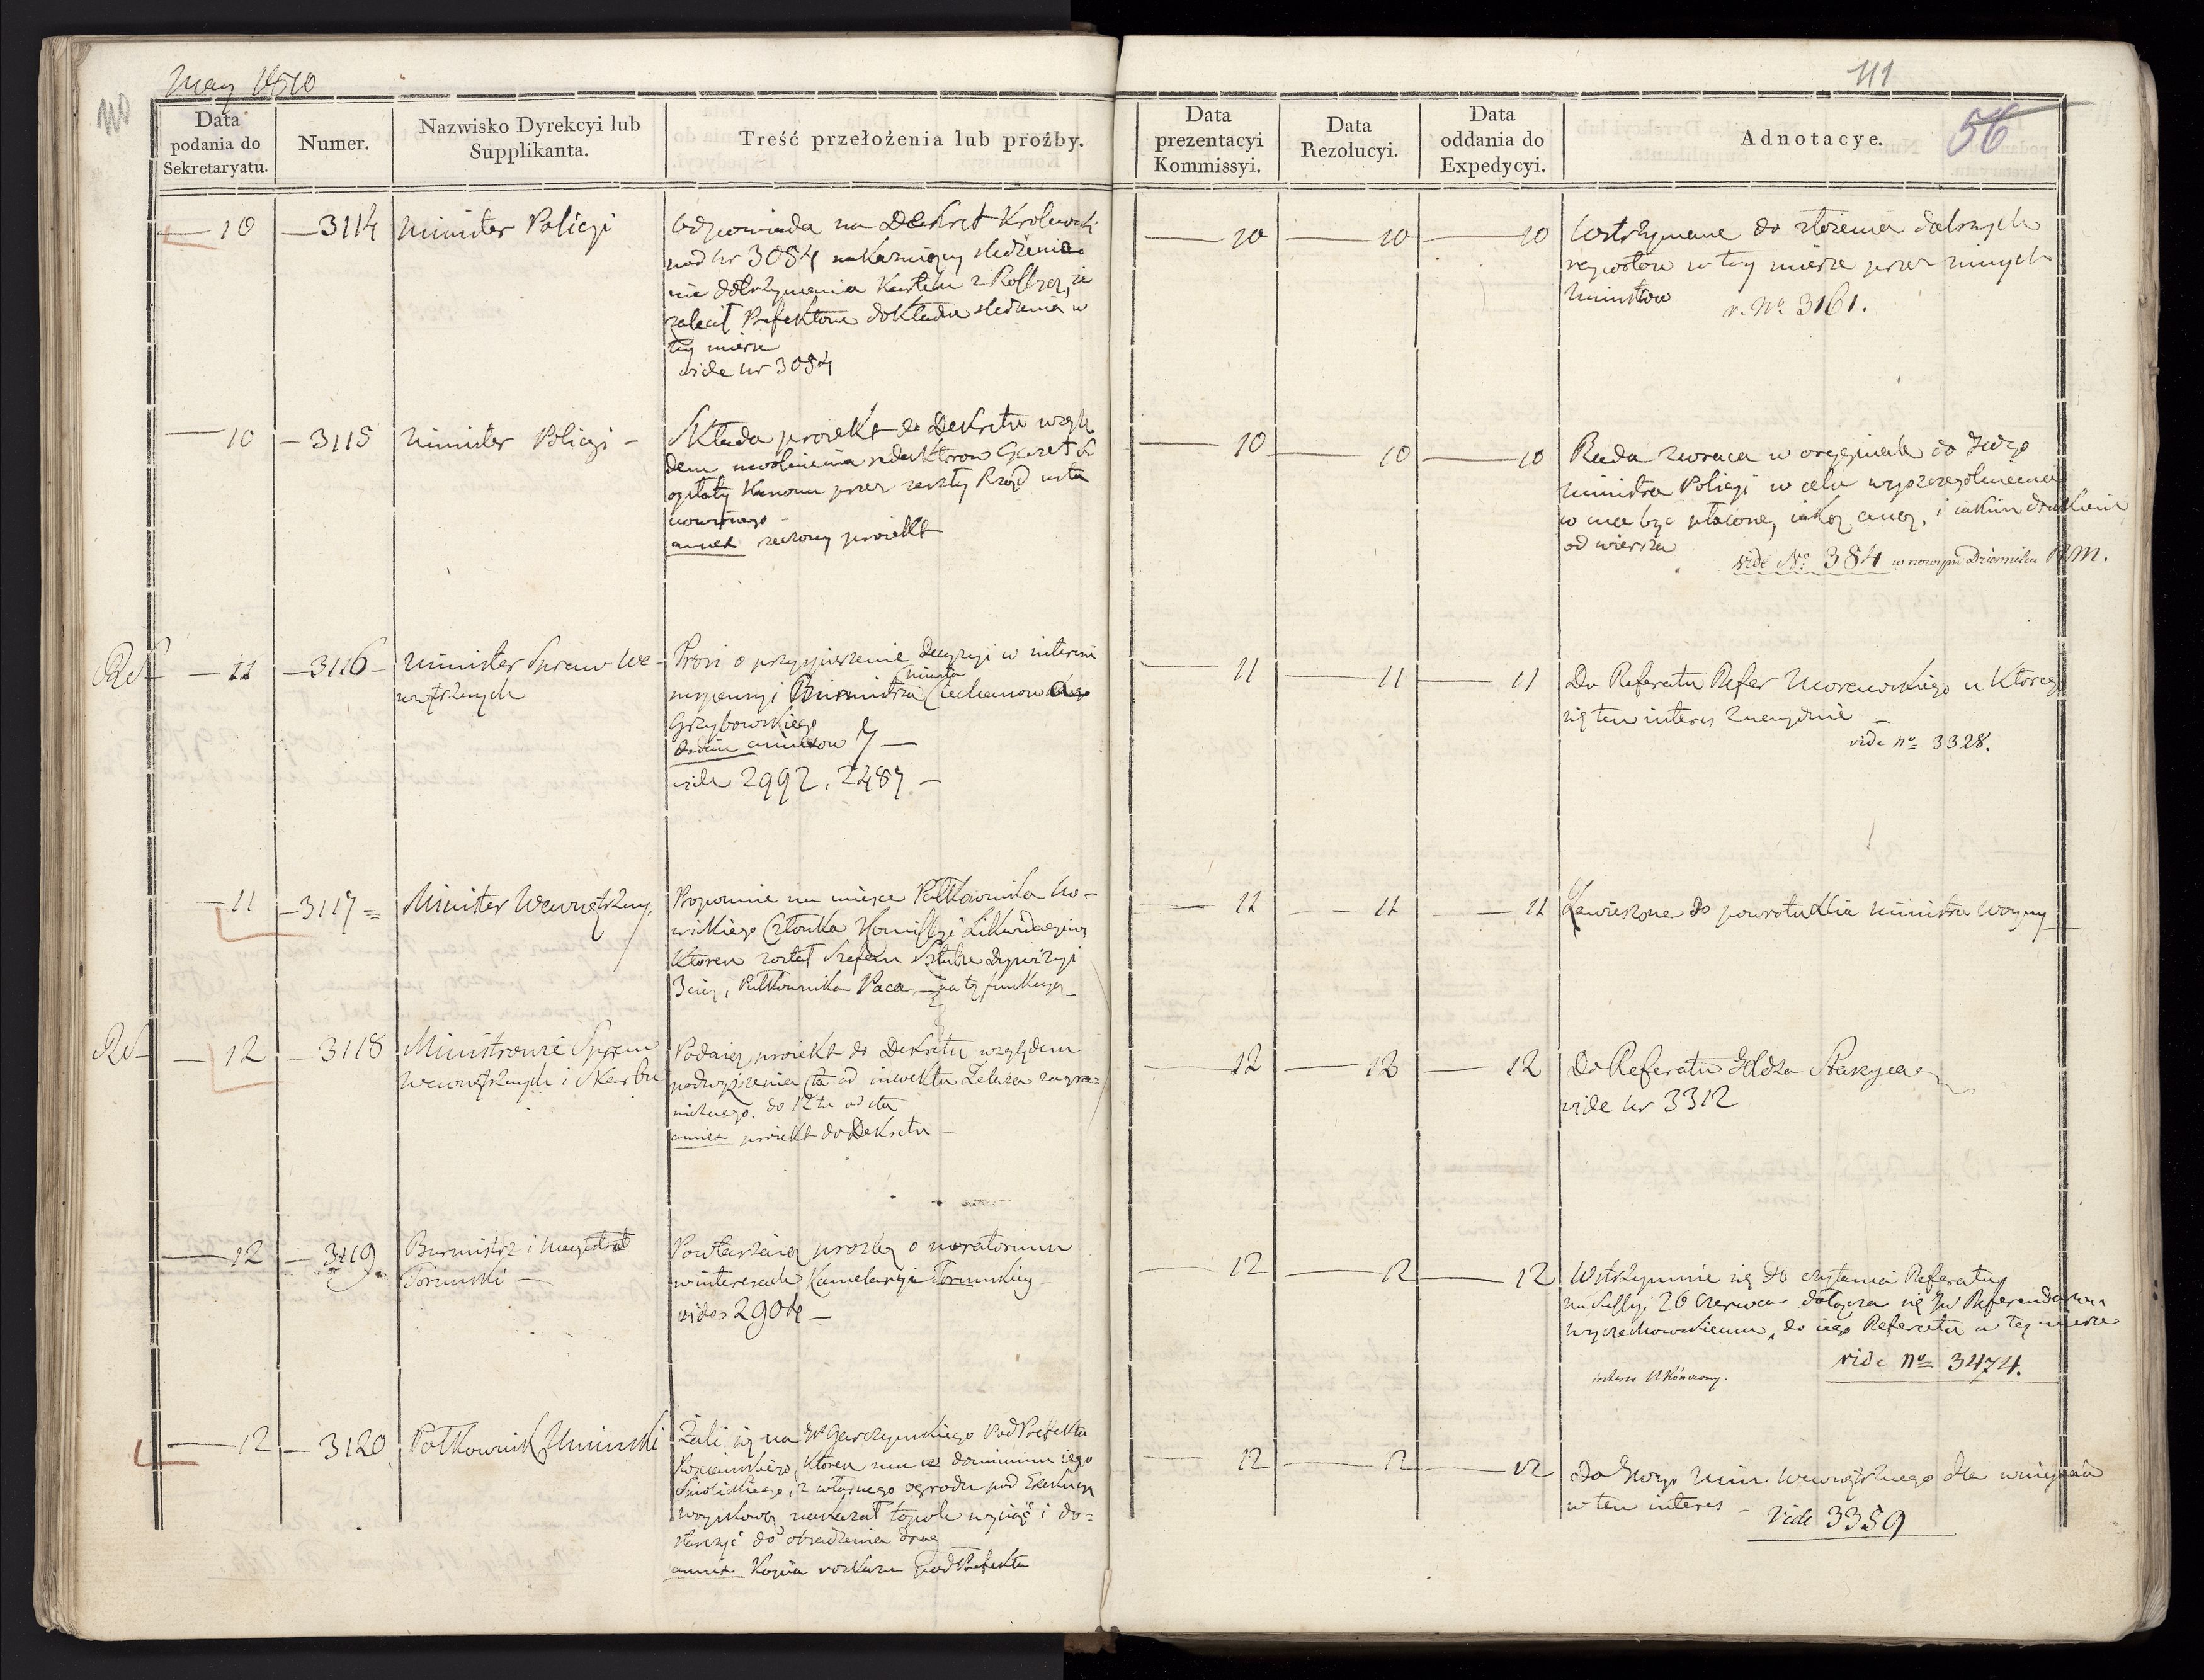 May 1810
110
Data podania do Sekretaryatu.
Numer.
Nazwisko Dyrekcyi lub Supplikanta.
Treść przełożenia lub proźby.
10
3114
Minister Policyi
Odpowiada na Dekret Krolewski
nad Nr 3084 nakazuiący sledzenie
nie dotrzymania Kartelu z Rossyą, że
zalecił Prefektom dokładne sledzenia w
tey mierze
vide Nr 3084
10
3115
Minister Policyi
Składa proiekt do Dekretu wzglę
dem uwolnienia redaktorow Gazet od
opłaty Kanonu przez zeszły Rząd usta
nowionego
annex rzeczony proiekt
Ref
11
3116
Minister Spraw We-
wnętrznych
Prosi o przyspieszenie decyzyi w interesie
suspensyi Burmistrza miasta Ciechanowa
Grzybowskiego
vide 2992, 2487
11
3117
Minister Wewnętrzny
Proponuie na mieysce Pułkownika No-
wickiego Członka Komissyi Likwidacyiney
ktoren został Szefem Sztabu Dywizyi
3ciey, Pułkownika Paca na tę funkcyą
Ref
12
3118
Ministrowie Spraw
Wewnętrznych i Skarbu
Podaią proiekt do Dekretu względem
podwyższenia Cła od inwektu Żelaza zagra-
nicznego do 12
annex proiekt do Dekretu
12
3119
Burmistrz i Magistrat
Toruński
Powtarzaią proźbę o moratorium
w interesach Kamelaryi Toruńskiey
vide 2904
12
3120
Pułkownik Umiński
Żali się na Garczyńskiego Pod Prefekta
ktoren mu w dominium iego
z własnego ogrodu pod Exekucyą
woyskową nakazał topole wyciąć i do-
starczyć do obsadzenia drog
annex Kopia rozkazu Pod Prefekta
111
56
Data prezentacyi Kommissyi.
Data Rezolucyi.
Data oddania do Expedycyi.
Adnotacye.
10
10
10
Wstrzymane do złożenia dalszych
raportow w tey mierze przez innych
Ministrow
v. No. 3161.
10
10
10
Rada zwraca w oryginale do JWgo
Ministra Policyi w celu wyszczegolnienia
co ma być płacone, iaką ceną, i iakim drukiem
od wiersza
vide No: 384 w nowym Dzienniku R.M.
11
11
11
Do Referatu Refer Morawskiego u Ktorego
się ten interes znayduie
vide no 3328.
11
11
11
Zawieszone do powrotu Xcia Ministra Woyny
12
12
12
Do Referatu
vide Nr 3312
12
12
12
Wstrzymuie się do czytania Referatu
na Sessyi 26 Czerwca dołącza się JW Referendarzowi
Wyczechowskiemu, do iego Referatu w tey mierze
vide no 3474.
interes Ukończony.
12
12
12
do JWgo Min. Wewnętrznego dla weyścia
w ten interes
Vide 3359